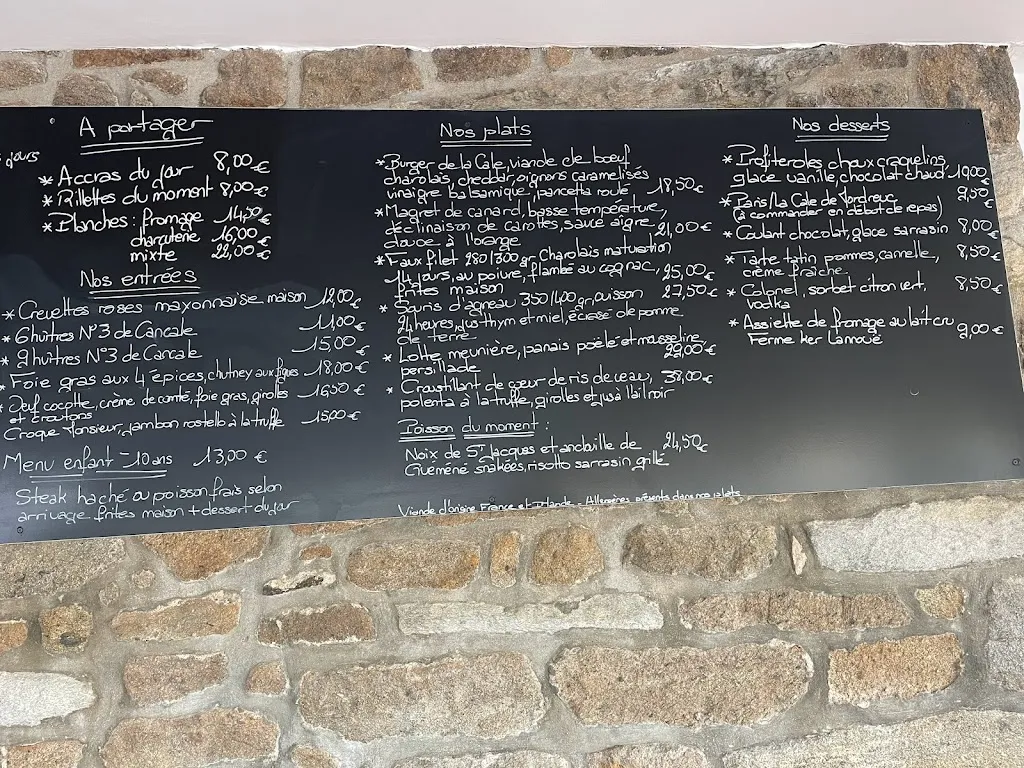 jours
A partager
* Accras du jour 8,00€
* Rillettes du moment 8,00€
* Planches: fromage 14,50€
charcuterie 16,00€
mixte 22,00€
Nos entrées
* Crevettes roses mayonnaise maison 12,00€
* 6 huîtres N°3 de Cancale 11,00€
* 9 huîtres N°3 de Cancale 15,00€
* Foie gras aux 4 épices, chutney aux figues 18,00€
* Oeuf cocotte, crème de comté, foie gras, girolles 16,50€
et croutons
Croque Monsieur, jambon rostello à la truffe 15,00€
Menu enfant -10 ans 13,00€
Steak haché ou poisson frais selon
arrivage frites maison + dessert du jour
Nos plats
* Burger de la Cale, viande de boeuf
charolais, cheddar, oignons caramelisés
vinaigre balsamique, pancetta roulé 18,50€
* Magret de canard, basse température,
déclinaison de carottes, sauce aigre 21,00€
douce à l'orange
* Faux filet 280/300gr, Charolais maturation
14 jours, au poivre, flambé au cognac, 25,00€
frites maison
* Souris d'agneau 350/400gr, cuisson 27,50€
24 heures, jus thym et miel, écrasé de pomme
de terre
* Lotte meunière, panais poêlé et mousseline
persillade 29,00€
* Croustillant de coeur de ris de veau, 38,00€
polenta à la truffe, girolles et jus à l'ail noir
Poisson du moment :
Noix de St Jacques et andouille de 24,50€
Guémené snakées, risotto sarrasin grillé
Viande d'origine France et Irlande - Allergènes présents dans nos plats
Nos desserts
* Profiteroles choux craquelins,
glace vanille, chocolat chaud 10,00€
* Paris/La Cale de Mordreuc 9,50€
(à commander en début de repas)
* Coulant chocolat, glace sarrasin 8,00€
* Tarte tatin pommes, cannelle, 8,50€
crème fraîche
* Colonel, sorbet citron vert, 8,50€
vodka
* Assiette de fromage au lait cru 9,00€
Ferme Ker Lannouë